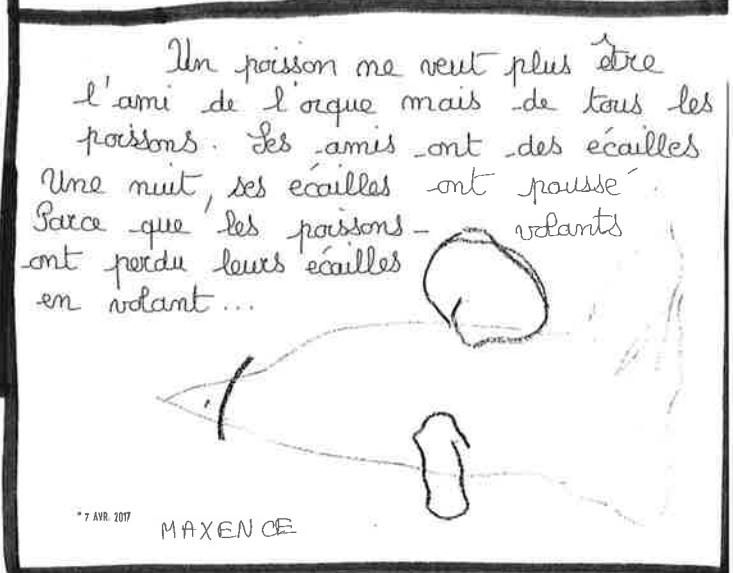 Un poisson ne veut plus être
l'ami de l'orque mais de tous les
poissons. Ses amis ont des écailles
Une nuit, ses écailles ont poussé
Parce que les poissons - volants
ont perdu leurs écailles
en volant...
7 AVR. 2017
MAXENCE